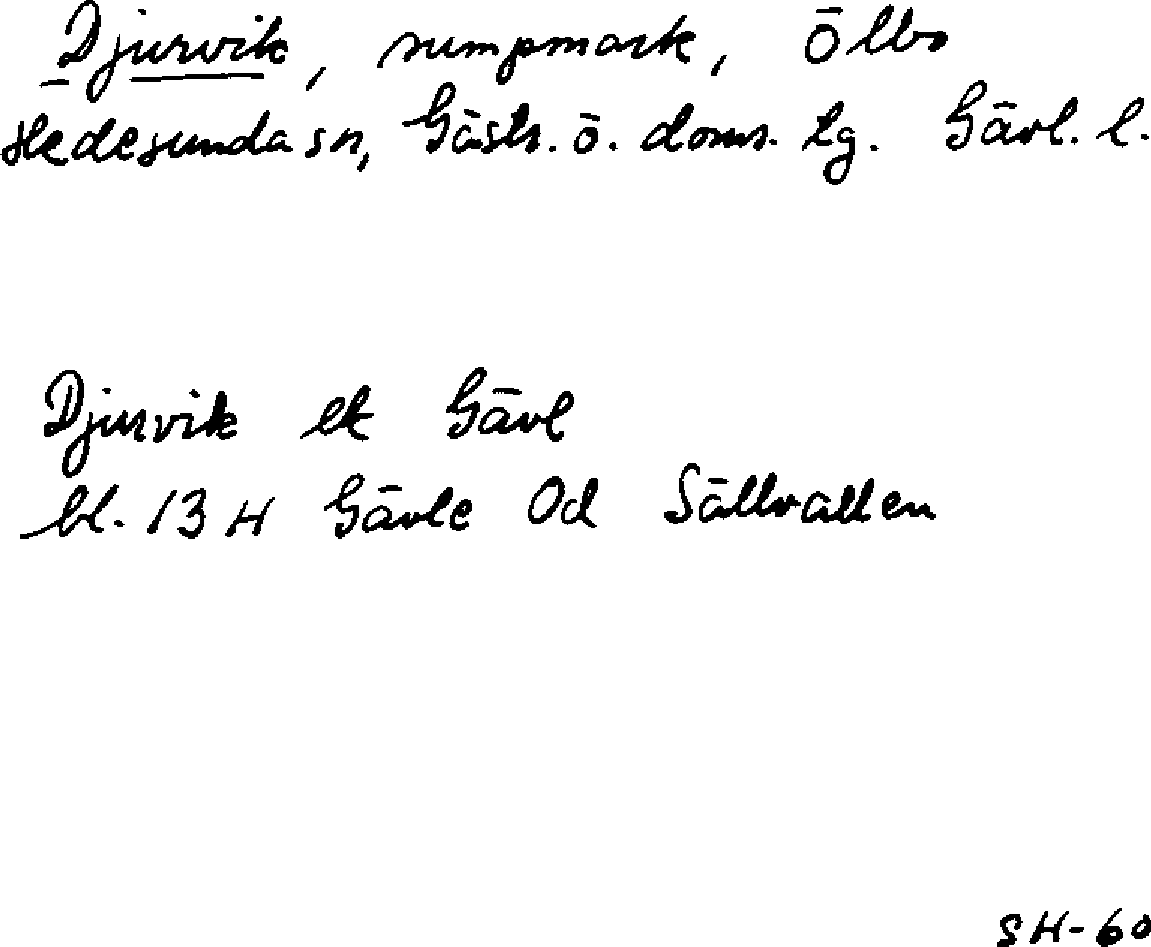 Djurvik, sumpmark, Ölbo
Hedesunda sn, Gästr. ö. doms. tg. Gävl. l.
Djurvik ek Gävl
bl. 13 H Gävle Od Sällvallen
SH-60